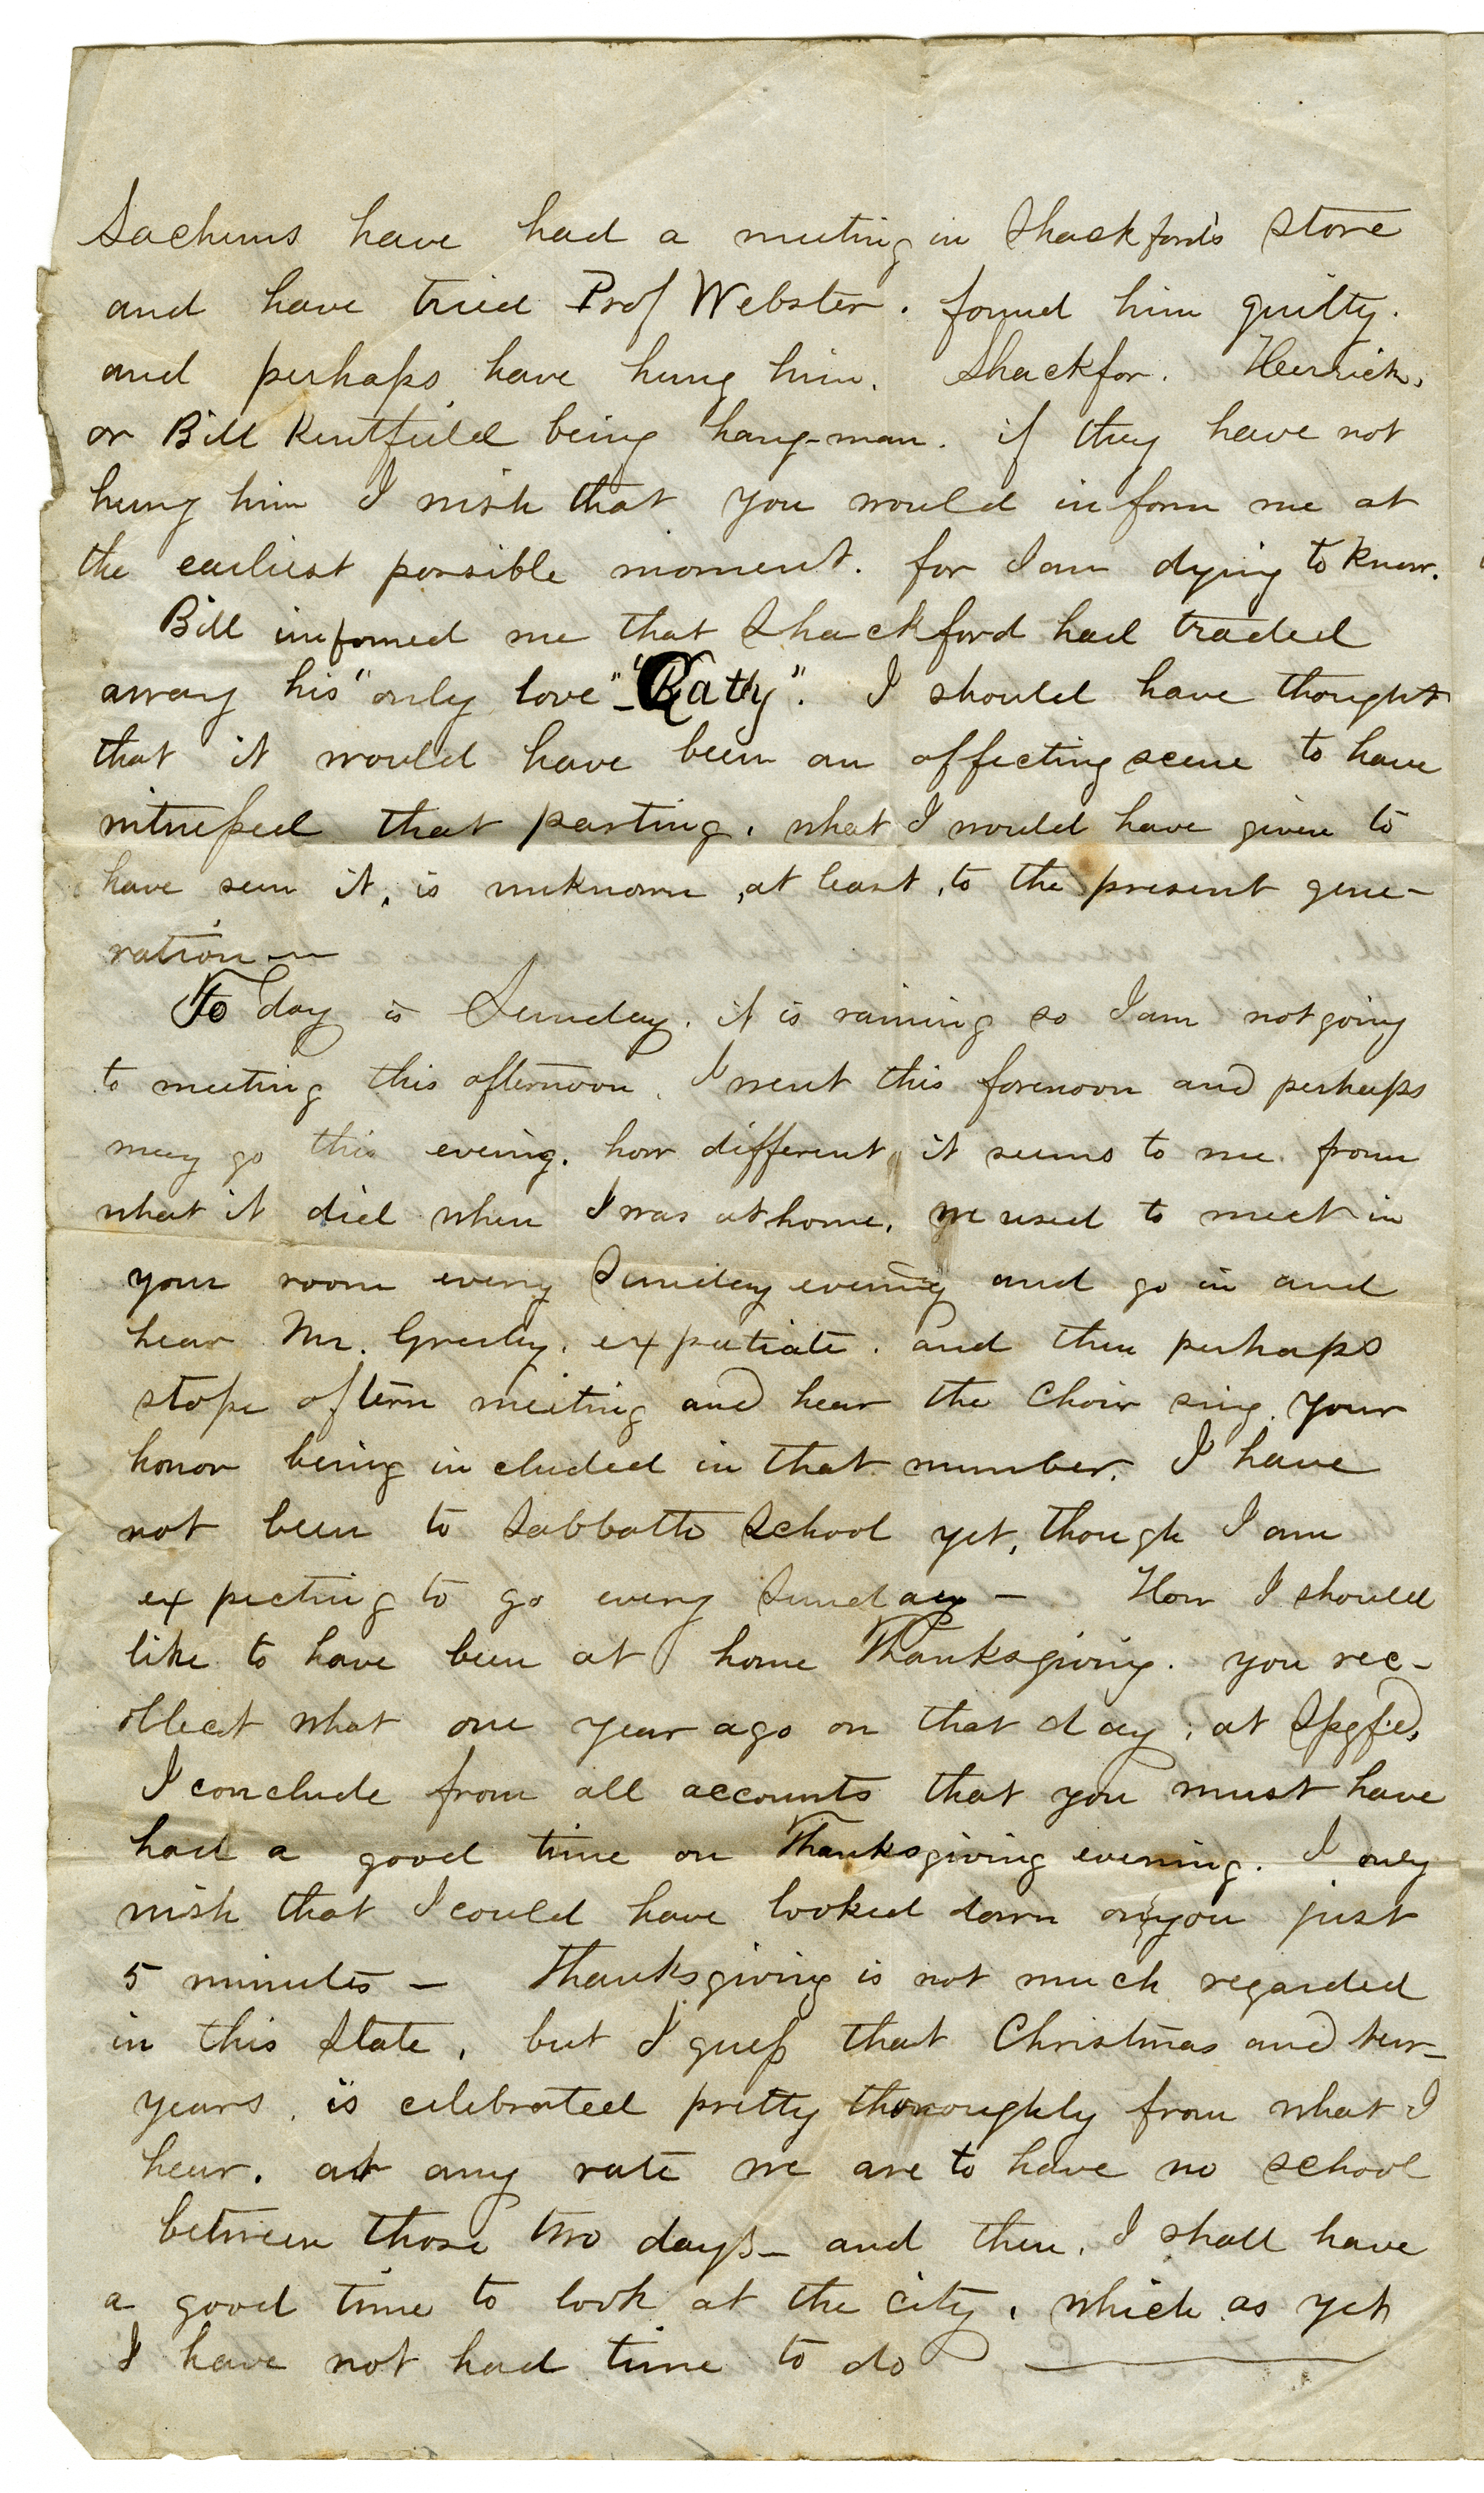 Sachems have had a meeting in Shackford's store
and have tried Prof Webster. found him guilty.
and perhaps have hung him. Shackfor. Herrick,
or Bill Kentfield being hang-man. if they have not
hung him I wish that you would inform me at
the earliest possible moment. for I am dying to know.
Bill informed me that Shackford had traded
away his "only love" - "Katy". I should have thought
that it would have been an affecting scene to have
witnessed that parting. what I would have given to
have seen it, is unknown, at least, to the present gene-
ration —
To day is Sunday. it is raining so I am not going
to meeting this afternoon. I went this forenoon and perhaps
may go this evening. how different it seems to me from
what it did when I was at home. we used to meet in
your room every Sunday evening and go in and
hear Mr. Greeley. expatiate. and then perhaps
stope aftern meeting and hear the Choir sing. your
honor being included in that number. I have
not been to Sabbath School yet, though I am
expecting to go every Sunday — How I should
like to have been at home Thanksgiving. you rec-
ollect what one year ago on that day, at Spgfd.
I conclude from all accounts that you must have
had a good time on Thanksgiving evening. I only
wish that I could have looked down on you just
5 minutes — Thanksgiving is not much regarded
in this State, but I guess that Christmas and New-
years, is celebrated pretty thoroughly from what I
hear. at any rate we are to have no school
between those two days — and then, I shall have
a good time to look at the city, which as yet
I have not had time to do —